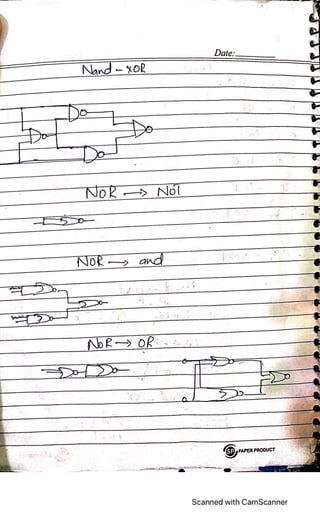 Date:
Nand - XOR
NOR → Not
NOR → and
NOR → OR
PAPER PRODUCT
Scanned with CamScanner